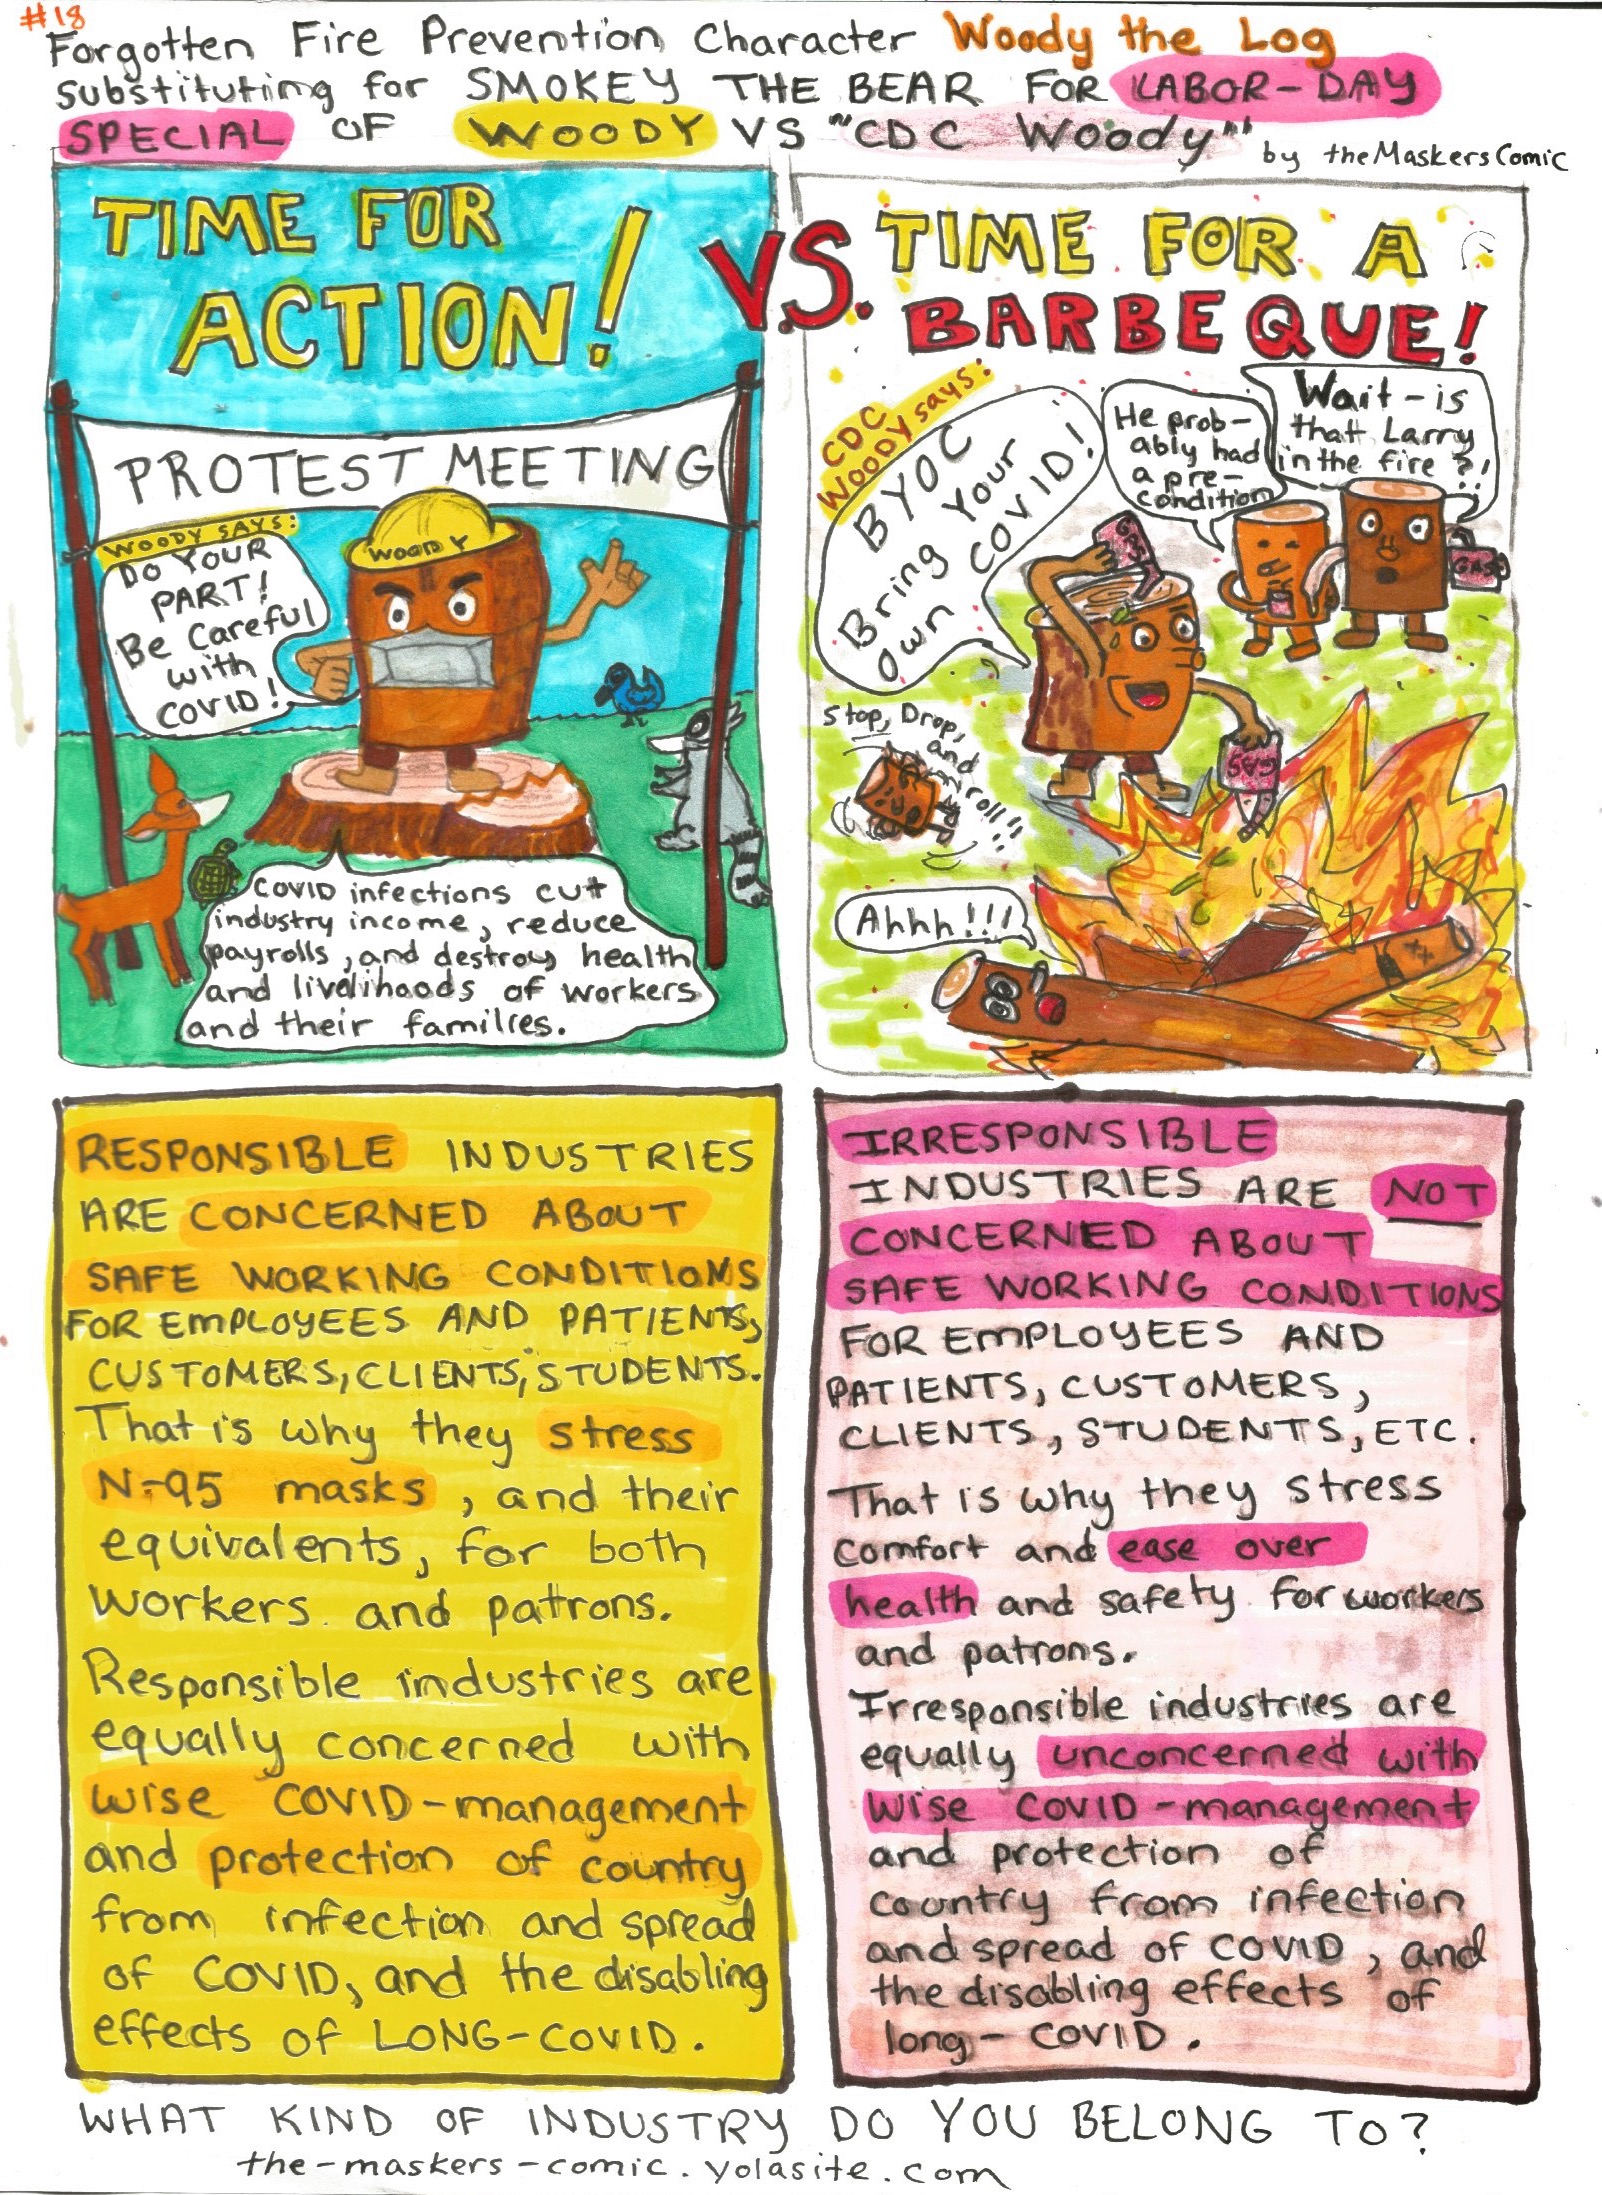 #18
Forgotten Fire Prevention Character Woody the Log
substituting for SMOKEY THE BEAR FOR LABOR-DAY
SPECIAL OF WOODY VS "CDC Woody"
by theMaskersComic
TIME FOR
ACTION!
V.S.
TIME FOR A
BARBEQUE!
PROTEST MEETING
WOODY SAYS:
DO YOUR
PART!
Be Careful
with
COVID!
WOODY
COVID infections cut
industry income, reduce
payrolls, and destroy health
and livelihoods of workers
and their families.
CDC
WOODY says:
BYOC
Bring Your
Own COVID!
He prob-
ably had
a pre-
condition
Wait - is
that Larry
in the fire?!
GAS
GAS
GAS
Stop, Drop,
and
roll!!
Ahhh!!!
RESPONSIBLE INDUSTRIES
ARE CONCERNED ABOUT
SAFE WORKING CONDITIONS
FOR EMPLOYEES AND PATIENTS,
CUSTOMERS, CLIENTS, STUDENTS.
That is why they stress
N-95 masks, and their
equivalents, for both
workers and patrons.
Responsible industries are
equally concerned with
wise COVID-management
and protection of country
from infection and spread
of COVID, and the disabling
effects of LONG-COVID.
IRRESPONSIBLE
INDUSTRIES ARE NOT
CONCERNED ABOUT
SAFE WORKING CONDITIONS
FOR EMPLOYEES AND
PATIENTS, CUSTOMERS,
CLIENTS, STUDENTS, ETC.
That is why they stress
comfort and ease over
health and safety for workers
and patrons.
Irresponsible industries are
equally unconcerned with
wise COVID-management
and protection of
country from infection
and spread of COVID, and
the disabling effects of
long-COVID.
WHAT KIND OF INDUSTRY DO YOU BELONG TO?
the-maskers-comic.yolasite.com